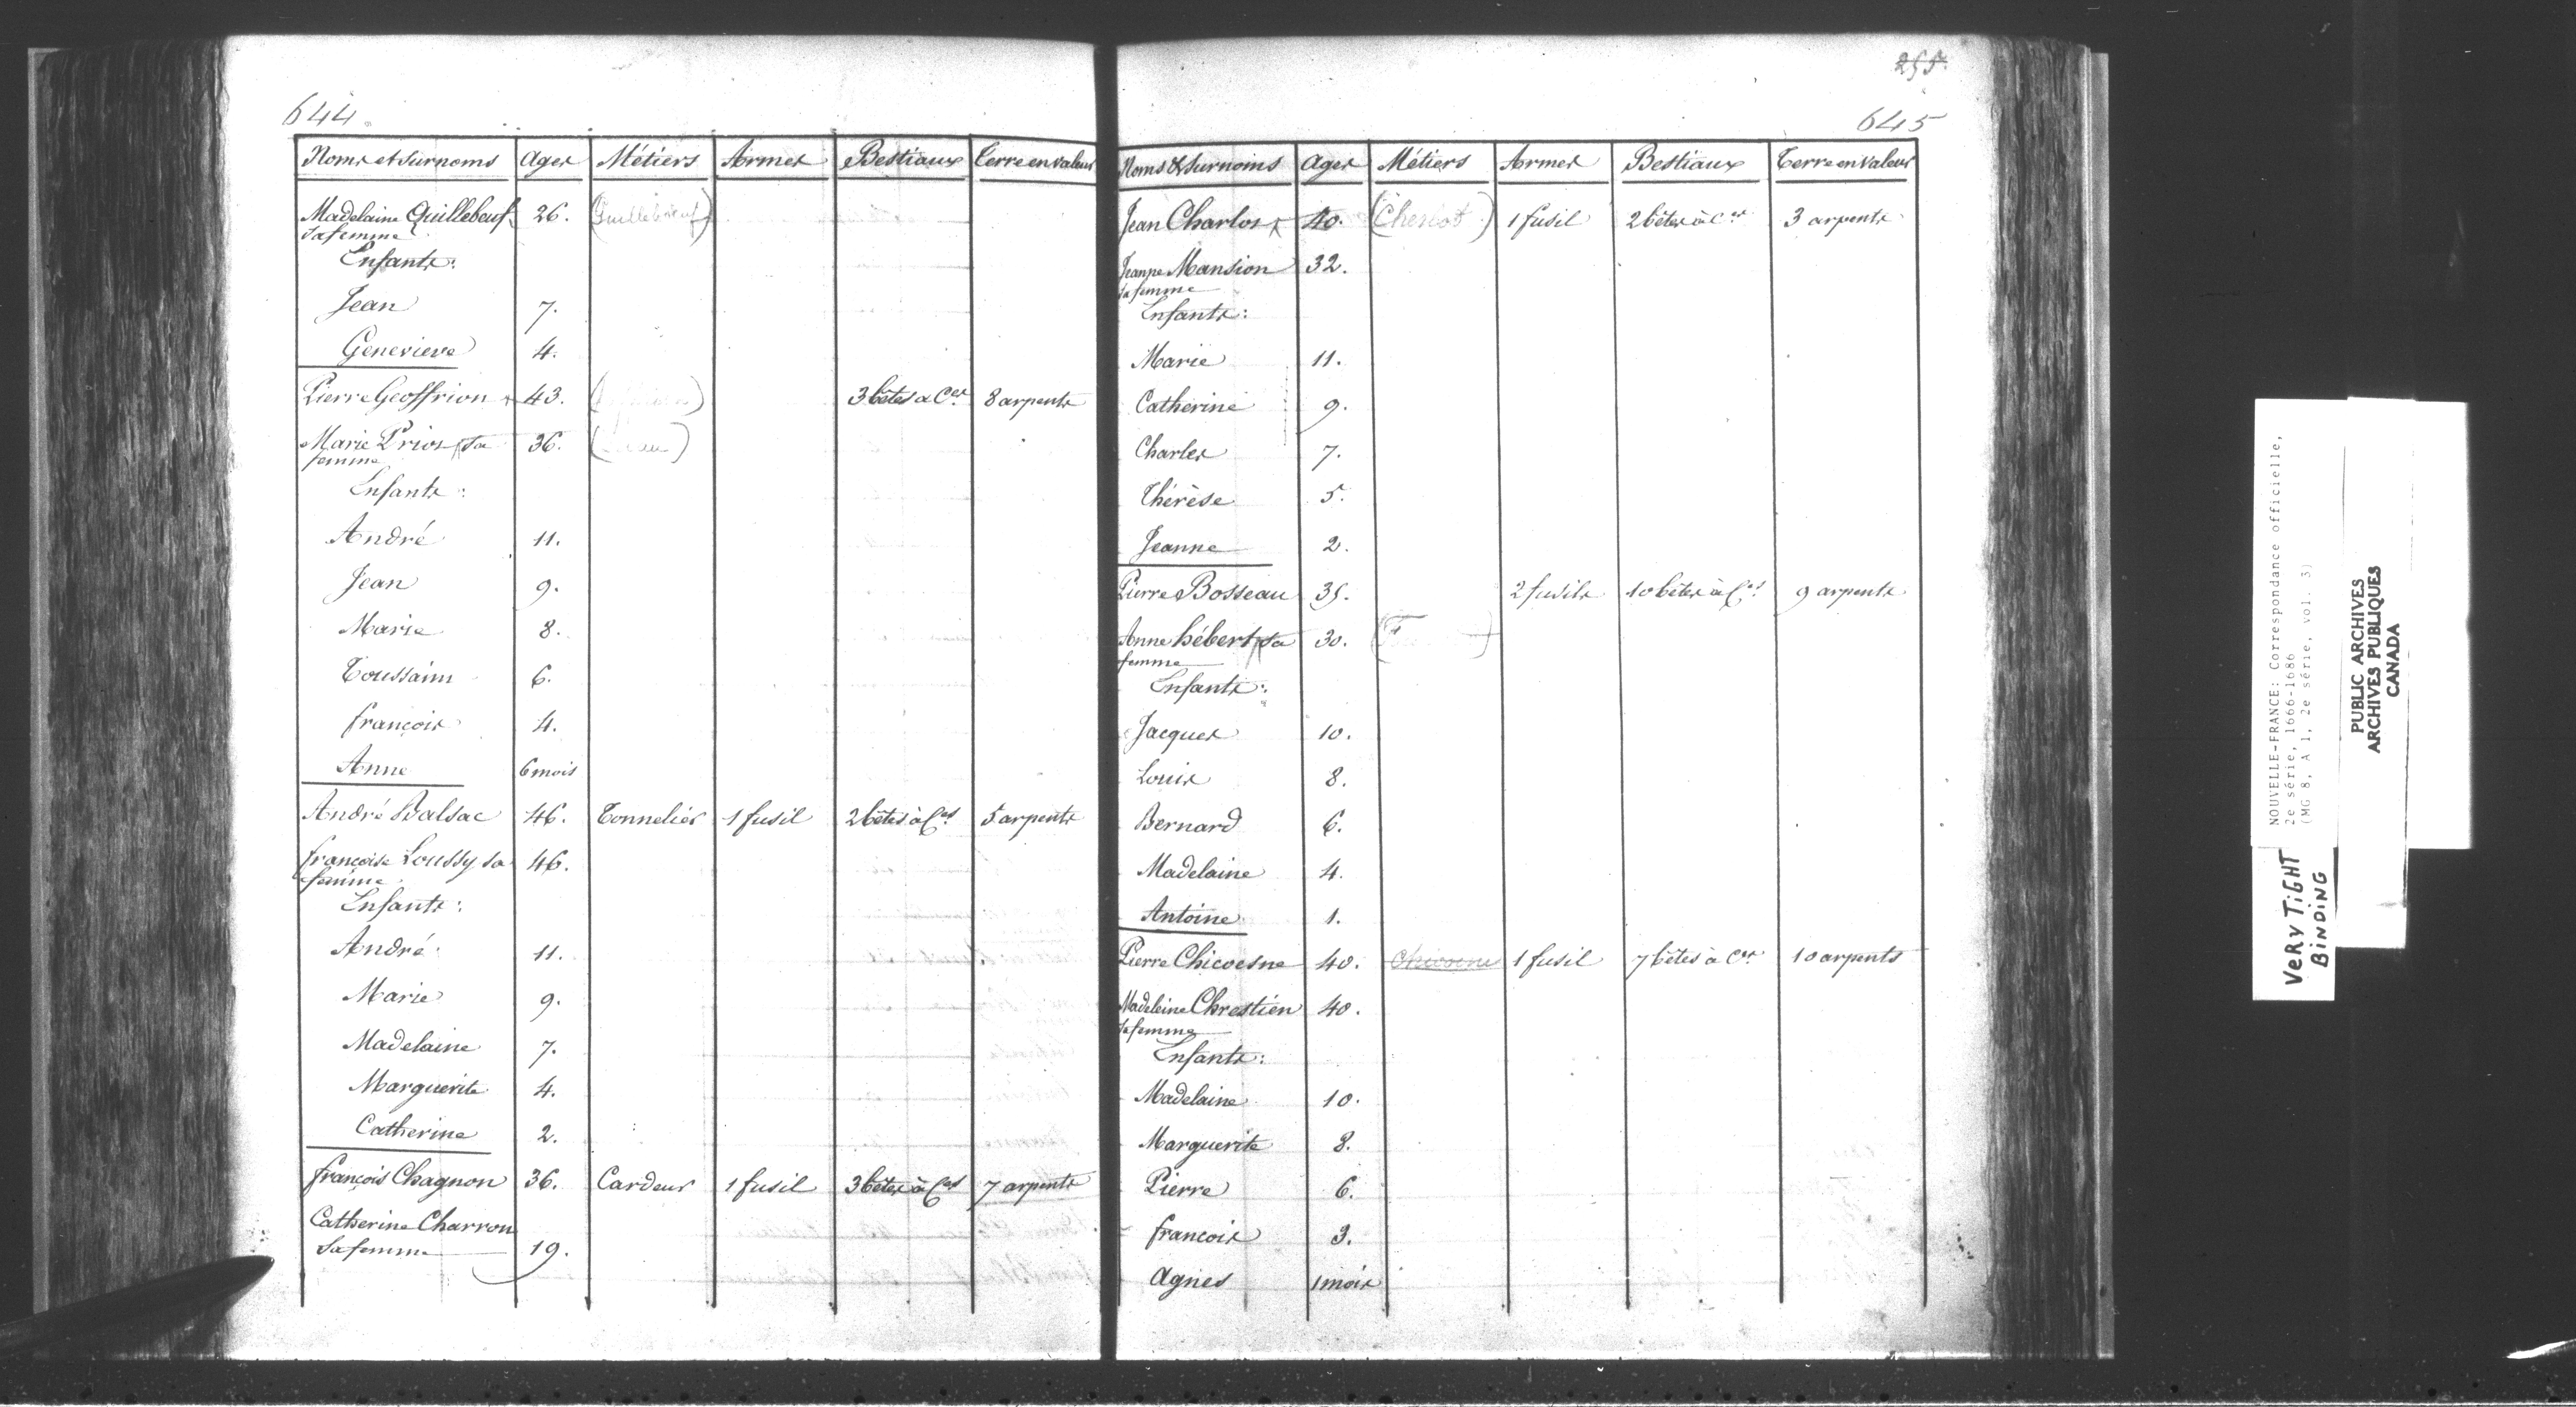 644
Noms et Surnoms Ages Métiers Armes Bestiaux Terre en valeur
Madelaine Quillebeuf 26. (Guillebœuf)
sa femme
Enfants:
Jean 7.
Genevieve 4.
Pierre Geoffrion 43. 3 bêtes a Ces 8 arpents
Marie Prior sa 36.
femme
Enfants:
André 11.
Jean 9.
Marie 8.
Toussaint 6.
françois 4.
Anne 6 mois
André Balsac 46. Tonnelier 1 fusil 2 bêtes à Ces 5 arpents
françoise Loussy sa 46.
femme
Enfants:
André 11.
Marie 9.
Madelaine 7.
Marguerite 4.
Catherine 2.
françois Chagnon 36. Cardeur 1 fusil 3 bêtes à Ces 7 arpents
Catherine Charron
sa femme 19.
255
645
Noms & Surnoms Ages Métiers Armes Bestiaux Terre en valeur
Jean Charlos 40. 1 fusil 2 bêtes à Ces 3 arpents
Jeanne Mansion 32.
sa femme
Enfants:
Marie 11.
Catherine 9.
Charles 7.
Thérèse 5.
Jeanne 2.
Pierre Bosseau 35. 2 fusils 10 bêtes à Ces 9 arpents
Anne hébert sa 30.
femme
Enfants:
Jacques 10.
Louis 8.
Bernard 6.
Madelaine 4.
Antoine 1.
Pierre Chicoesne 40. Chicoene 1 fusil 7 bêtes à Ces 10 arpents
Madeleine Chrestien 40.
sa femme
Enfants:
Madelaine 10.
Marguerite 8.
Pierre 6.
francois 3.
Agnes 1 mois
NOUVELLE-FRANCE: Correspondance officielle,
2e série, 1666-1686
(MG 8, A 1, 2e série, vol. 3)
VERY TIGHT
BINDING
PUBLIC ARCHIVES
ARCHIVES PUBLIQUES
CANADA